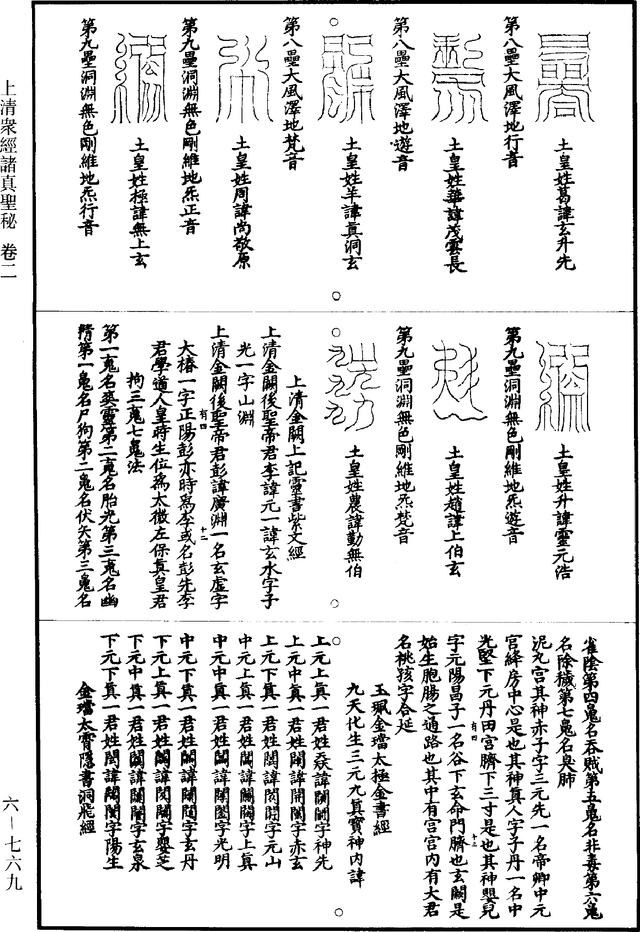 上清衆經諸真聖秘　卷二
六—七六九
土皇姓葛諱玄升先
第八壘大風澤地行音
土皇姓華諱茂雲長
第八壘大風澤地遊音
土皇姓羊諱真洞玄
第八壘大風澤地梵音
土皇姓周諱尚敬原
第九壘洞淵無色剛維地炁正音
土皇姓極諱無上玄
第九壘洞淵無色剛維地炁行音
土皇姓升諱靈元浩
第九壘洞淵無色剛維地炁遊音
土皇姓趙諱上伯玄
第九壘洞淵無色剛維地炁梵音
土皇姓農諱勤無伯
上清金闕上記靈書紫文經
上清金闕後聖帝君李諱元一諱玄水字子
光一字山淵
上清金闕後聖帝君彭諱廣淵一名玄虛字
大椿一字正陽彭亦時爲李或名彭先李
君學道人皇時生位爲太微左保真皇君
拘三䰟七䰟法
第一䰟名爽靈第二䰟名胎光第三䰟名幽
精第一䰟名尸狗第二䰟名伏矢第三䰟名
雀陰第四䰟名吞賊第五䰟名非毒第六䰟
名除穢第七䰟名臭肺
泥丸宮其神赤子字三元先一名帝卿中元
宮絳房中心是也其神真人字子丹一名中
光堅下元丹田宮臍下三寸是也其神嬰兒
字元陽昌子一名谷下玄命門臍也玄闕是
始生胞腸之通路也其中有宮宮内有大君
名桃孩字合延
玉珮金璫太極金書經
九天化生三元九真寶神内諱
上元上真一君姓 諱 字神先
上元中真一君姓 諱 字赤玄
上元下真一君姓 諱 字元山
中元上真一君姓 諱 字上真
中元中真一君姓 諱 字光明
中元下真一君姓 諱 字玄丹
下元上真一君姓 諱 字嬰芝
下元中真一君姓 諱 字玄泉
下元下真一君姓 諱 字陽生
金璫太霄隱書洞飛經